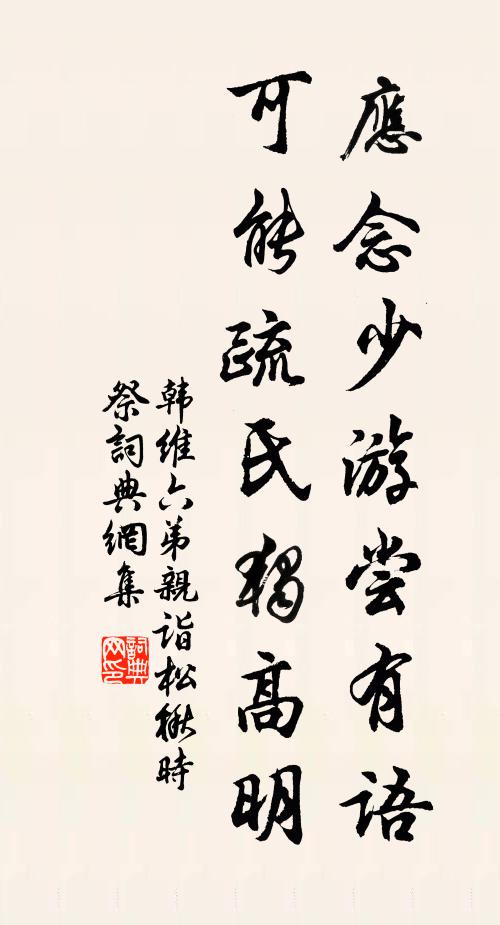 應念少游尝有语
可能疏氏独高明
韩维六弟親诣松楸時
祭詞典網集
詞典网印